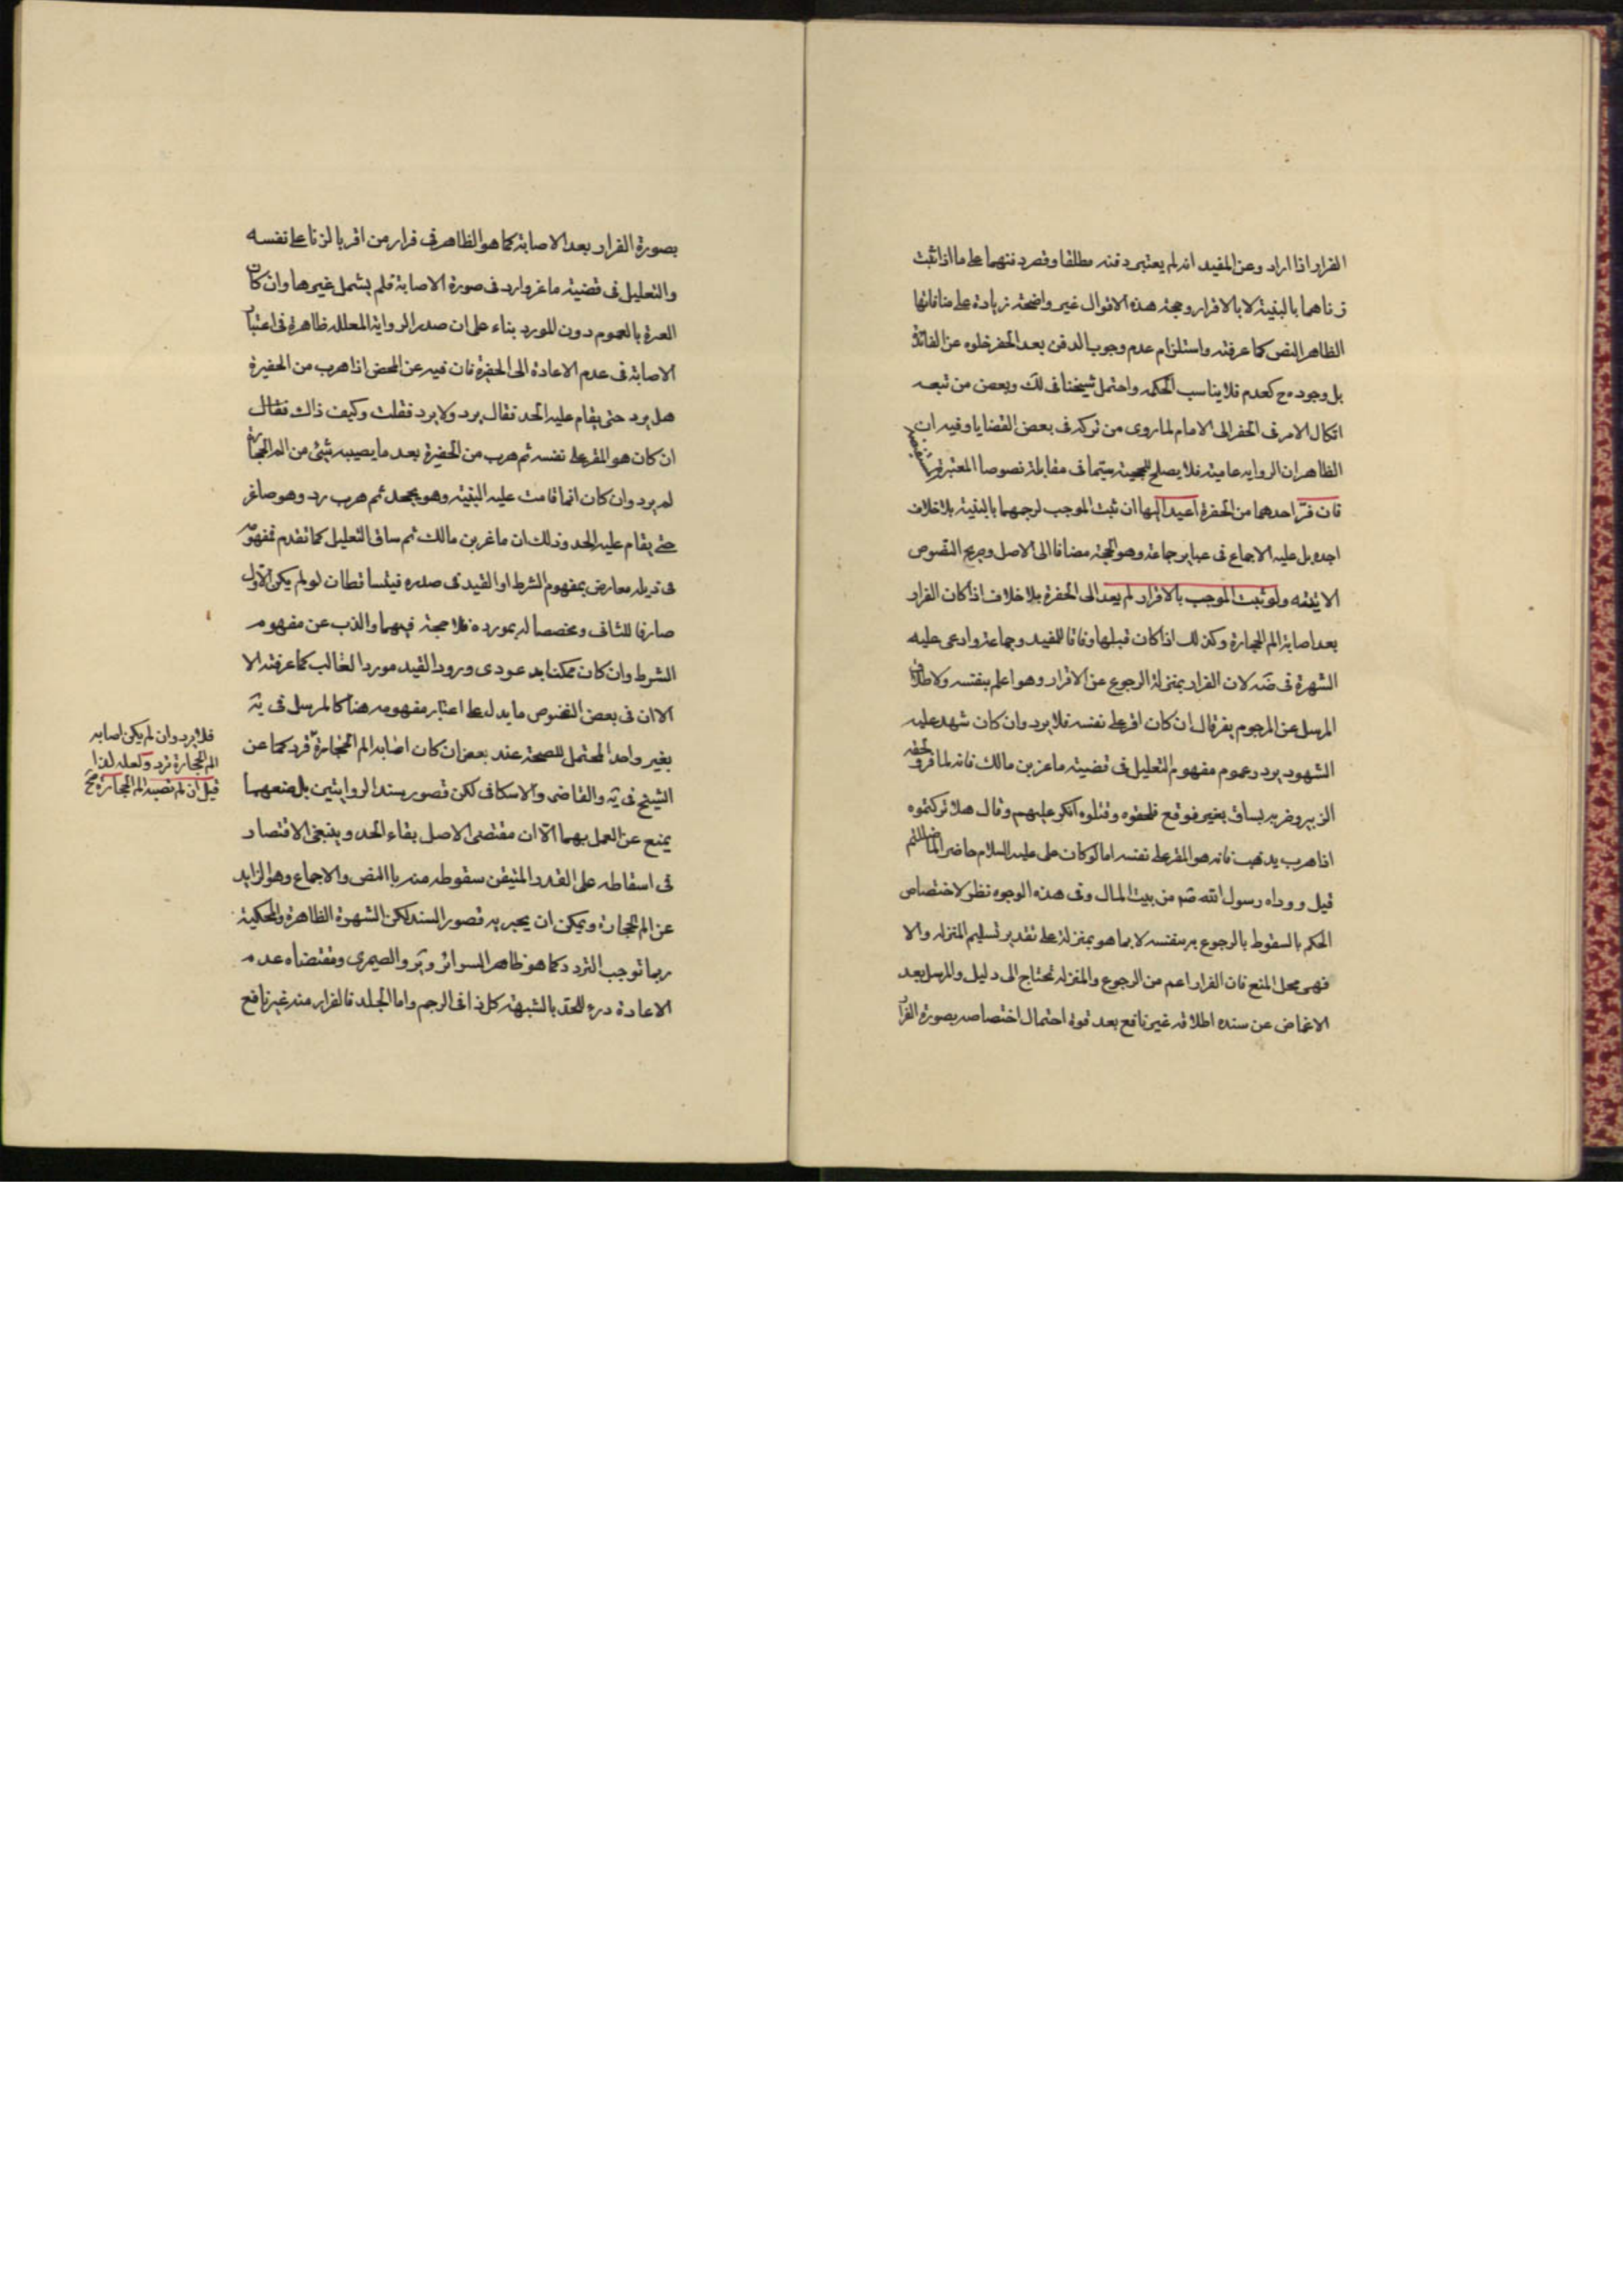 الفرار اذا اراد وعن المفيد انه لم يعتبر دفنه مطلقا وقصر دفنهما على ما اذا ثبت
زناهما بالبينة لا بالاقرار وحجة هذه الاقوال غير واضحة زيادة على منافاتها
الظاهر النص كما عرفته واستلزام عدم وجوب الدفن بعد الحفر خلوه عن الفائدة
بل وجوده ح كعدم فلا يناسب الحكمه واحتمل شيخنا فى لك وبعض من تبعه
اتكال الامر فى الحفر الى الامام لما روى من تركه فى بعض القضايا وفيه ان
الظاهر ان الروايه عامية فلا يصلح للحجية سيما فى مقابلة نصوصنا المعتبرة
فان فرّ احدهما من الحفرة اعيد اليها ان ثبت الموجب لرجمهما بالبينة بلا خلاف
اجده بل عليه الاجماع فى عباير جماعة وهو الحجة مضافا الى الاصل وصريح النصوص
الاتية ولو ثبت الموجب بالاقرار لم يعد الى الحفرة بلا خلاف اذا كان الفرار
بعد اصابة الم الحجارة وكذلك اذا كان قبلها وفاقا للمفيد وجماعة وادعى عليه
الشهرة فى ضه لان الفرار بمنزلة الرجوع عن الاقرار وهو اعلم بنفسه ولاطلاق
المرسل عن المرجوم يفر قال ان كان اقر على نفسه فلا يرد وان كان شهد عليه
الشهود يرد وعموم مفهوم التعليل فى قضية ماعز بن مالك فانه لما فر لحقه
الزبير وضربه بساق بعير فوقع فلحقوه وقتلوه انكر عليهم وقال هلا تركتموه
اذا هرب يذهب فانه هو المقر على نفسه اما لو كان على عليه السلام حاضرا لما ضللتم
قيل ووداه رسول الله صم من بيت المال وفى هذه الوجوه نظر لاختصاص
الحكم بالسقوط بالرجوع به بنفسه لا بما هو بمنزلة على تقدير تسليم المنزله والا
فهى محل المنع فان الفرار اعم من الرجوع والمنزله تحتاج الى دليل والمرسل بعد
الاغماض عن سنده اطلاقه غير نافع بعد قوة احتمال اختصاصه بصورة الفرار
بصورة الفرار بعد الاصابة كما هو الظاهر فى فرار من اقر بالزنا على نفسه
والتعليل فى قضية ماعز وارد فى صورة الاصابة فلم يشمل غيرها وان كان
العبرة بالعموم دون المورد بناء على ان صدر الرواية المعلله ظاهرة فى اعتبار
الاصابة فى عدم الاعادة الى الحفيرة فان فيه عن المحصن اذا هرب من الحفيرة
هل يرد حتى يقام عليه الحد فقال يرد ولا يرد فقلت وكيف ذاك فقال
ان كان هو المقر على نفسه ثم هرب من الحفيرة بعد ما يصيبه شئ من الم الحجارة
لم يرد وان كان انما قامت عليه البينة وهو يجحد ثم هرب رد وهو صاغر
حتى يقام عليه الحد وذلك ان ماغر بن مالك ثم ساق التعليل كما تقدم فمفهومه
فى ذيله معارض بمفهوم الشرط او القيد فى صدره فيتساقطان لو لم يكن الاول
صارفا للثانى ومخصصا له بمورده فلا حجة فيهما والذب عن مفهوم
الشرط وان كان ممكنا بدعوى ورود القيد مورد الغالب كما عرفته الا
الا ان فى بعض النصوص ما يدل على اعتبار مفهومه هنا كالمرسل فى يه
بغير واحد المحتمل للصحة عند بعض ان كان اصابه الم الحجارة فرد كما عن
الشيخ فى يه والقاضى والاسكافى لكن قصور سند الروايتين بل ضعهما
يمنع عن العمل بهما الا ان مقتضى الاصل بقاء الحد وينبغى الاقتصار
فى اسقاطه على القدر المتيقن سقوطه منه باالنص والاجماع وهو الزايد
عن الم الحجارة ويمكن ان يجبر به قصور السند لكن الشهرة الظاهرة والمحكية
ربما توجب التردد كما هو ظاهر السرائر و ير والصيمرى ومقتضاه عدم
الاعادة درء للحد بالشبهة كل ذا فى الرجم واما الجلد فالفرار منه غير نافع
فلا يرد وان لم يكن اصابه
الم الحجارة ترد ولعله لذا
قيل ان لم تصبه الم الحجارة